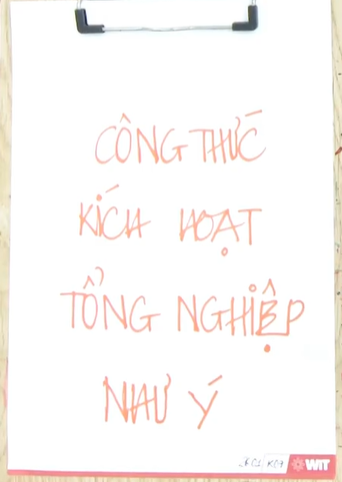 CÔNG THỨC
KÍCH HOẠT
TỔNG NGHIỆP
NHƯ Ý
WIT